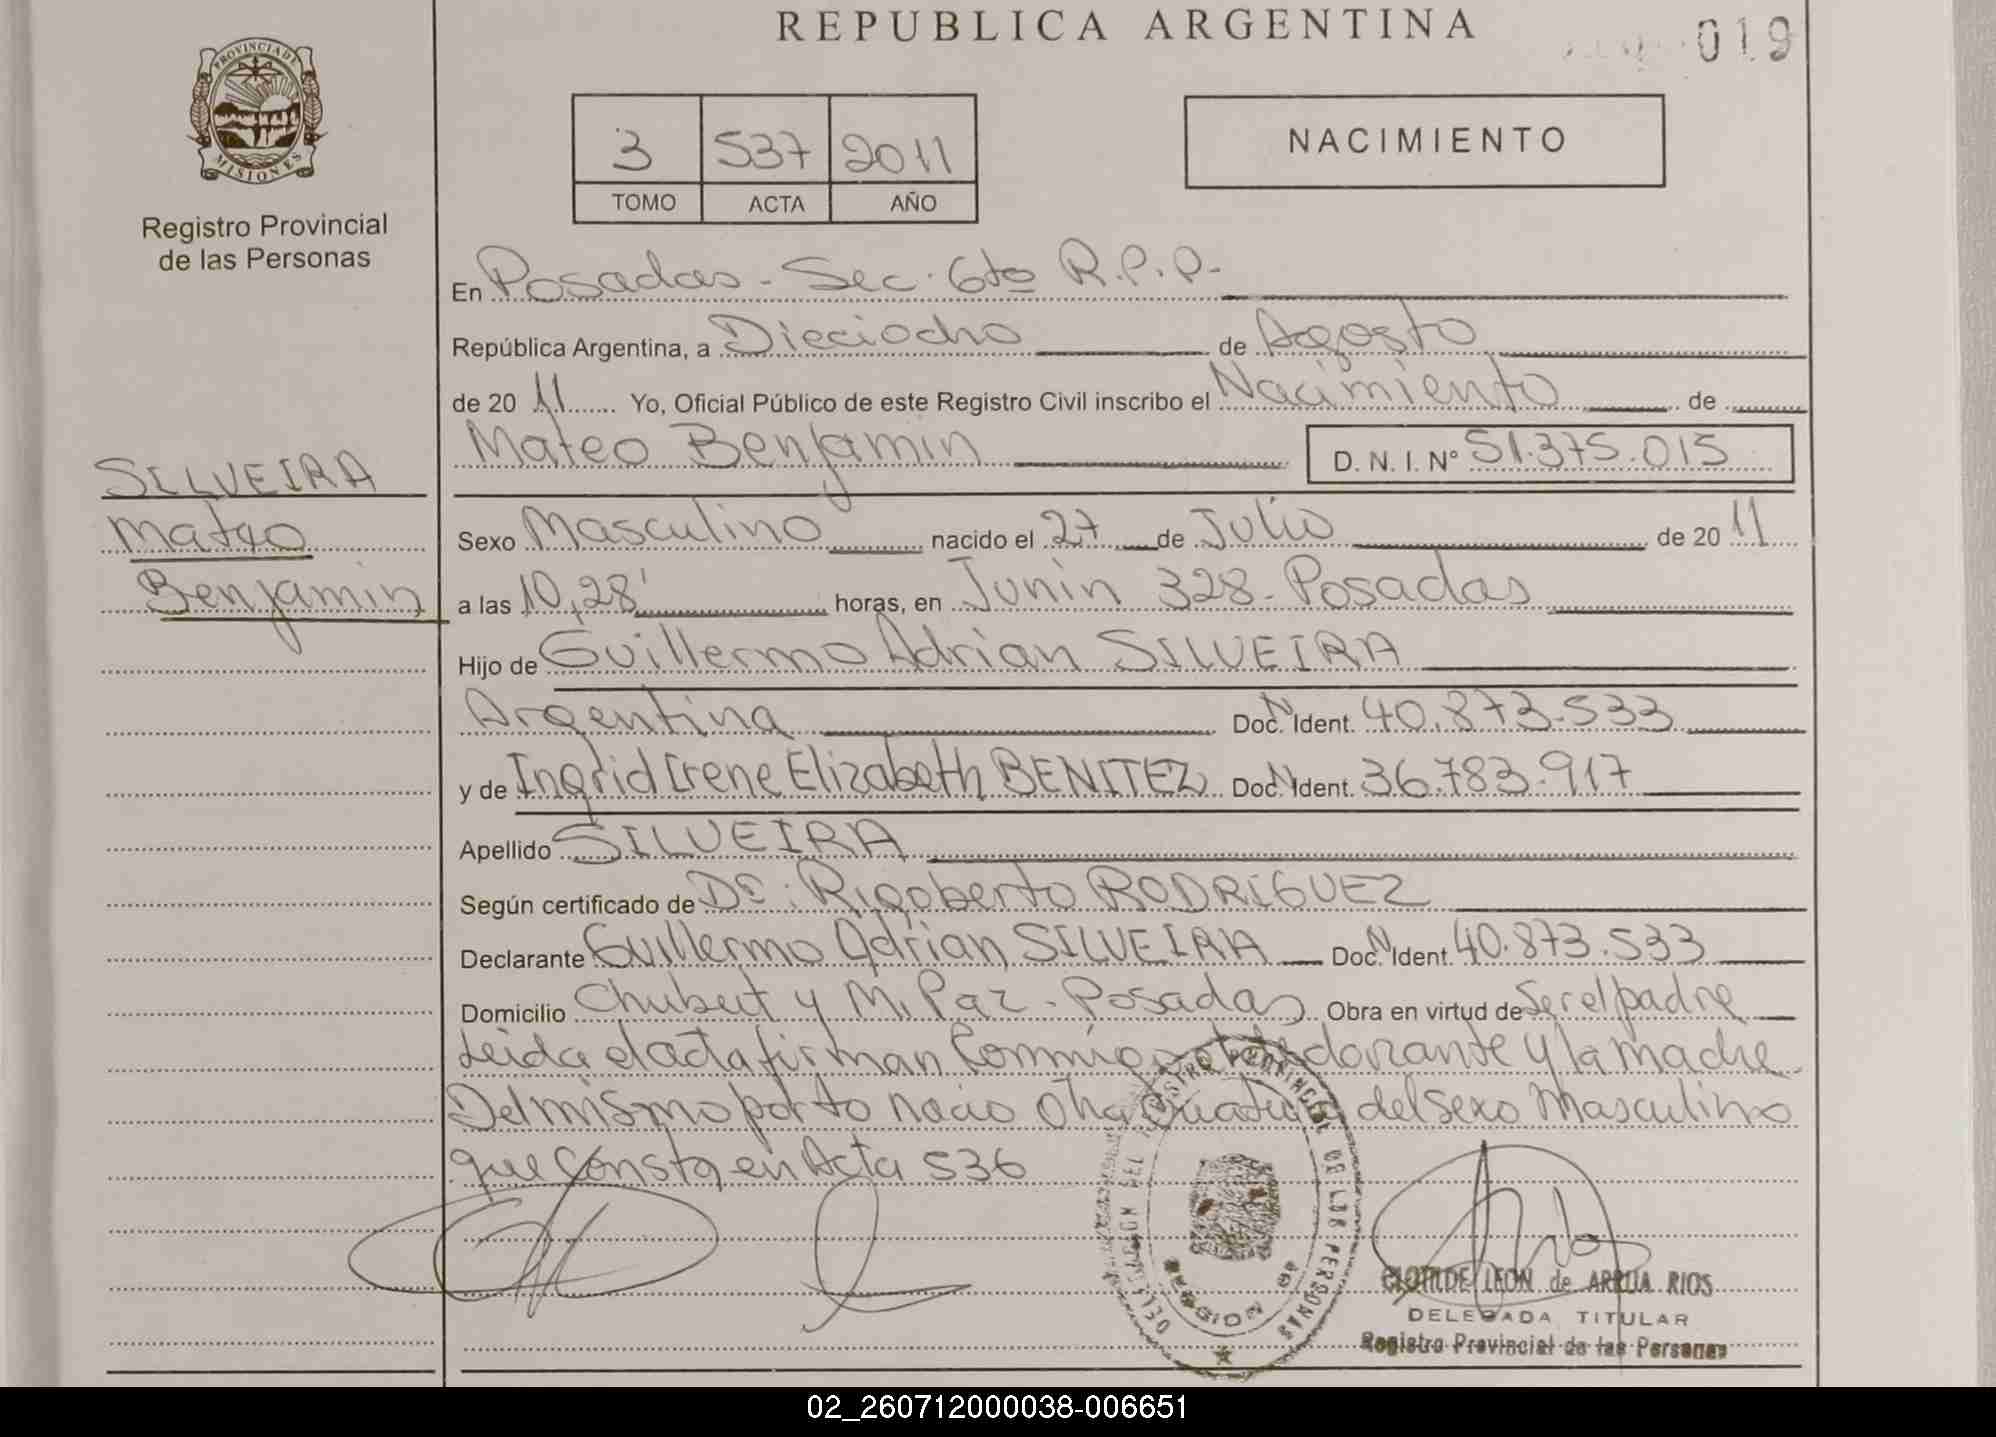 REPUBLICA ARGENTINA
019
PROVINCIA DE
MISIONES
Registro Provincial
de las Personas
3 537 2011
TOMO ACTA AÑO
NACIMIENTO
En Posadas - Sec. 6to R.P.P.-
República Argentina, a Dieciocho de Agosto
de 20 11 Yo, Oficial Público de este Registro Civil inscribo el Nacimiento de
Mateo Benjamin D. N. I. Nº 51.375.015
SILVEIRA
Mateo
Benjamin
Sexo Masculino nacido el 27 de Julio de 20 11
a las 10,28' horas, en Junin 328 - Posadas
Hijo de Guillermo Adrian SILVEIRA
Argentina Doc. N Ident. 40.873.533
y de Ingrid Irene Elizabeth BENITEZ Doc. N Ident. 36.783.917
Apellido SILVEIRA
Según certificado de Dr: Rigoberto RODRIGUEZ
Declarante Guillermo Adrian SILVEIRA Doc. N Ident. 40.873.533
Domicilio Chubut y M. Paz - Posadas Obra en virtud de Ser el padre
Leida el acta firman Conmigo el y la madre
Del mismo parto nacio Otra Criatura del sexo Masculino
que Consta en Acta 536
DELEGACION DEL REGISTRO PROVINCIAL DE LAS PERSONAS
CLOTILDE LEON de ARRUA RIOS
DELEGADA TITULAR
Registro Provincial de las Personas
02_260712000038-006651